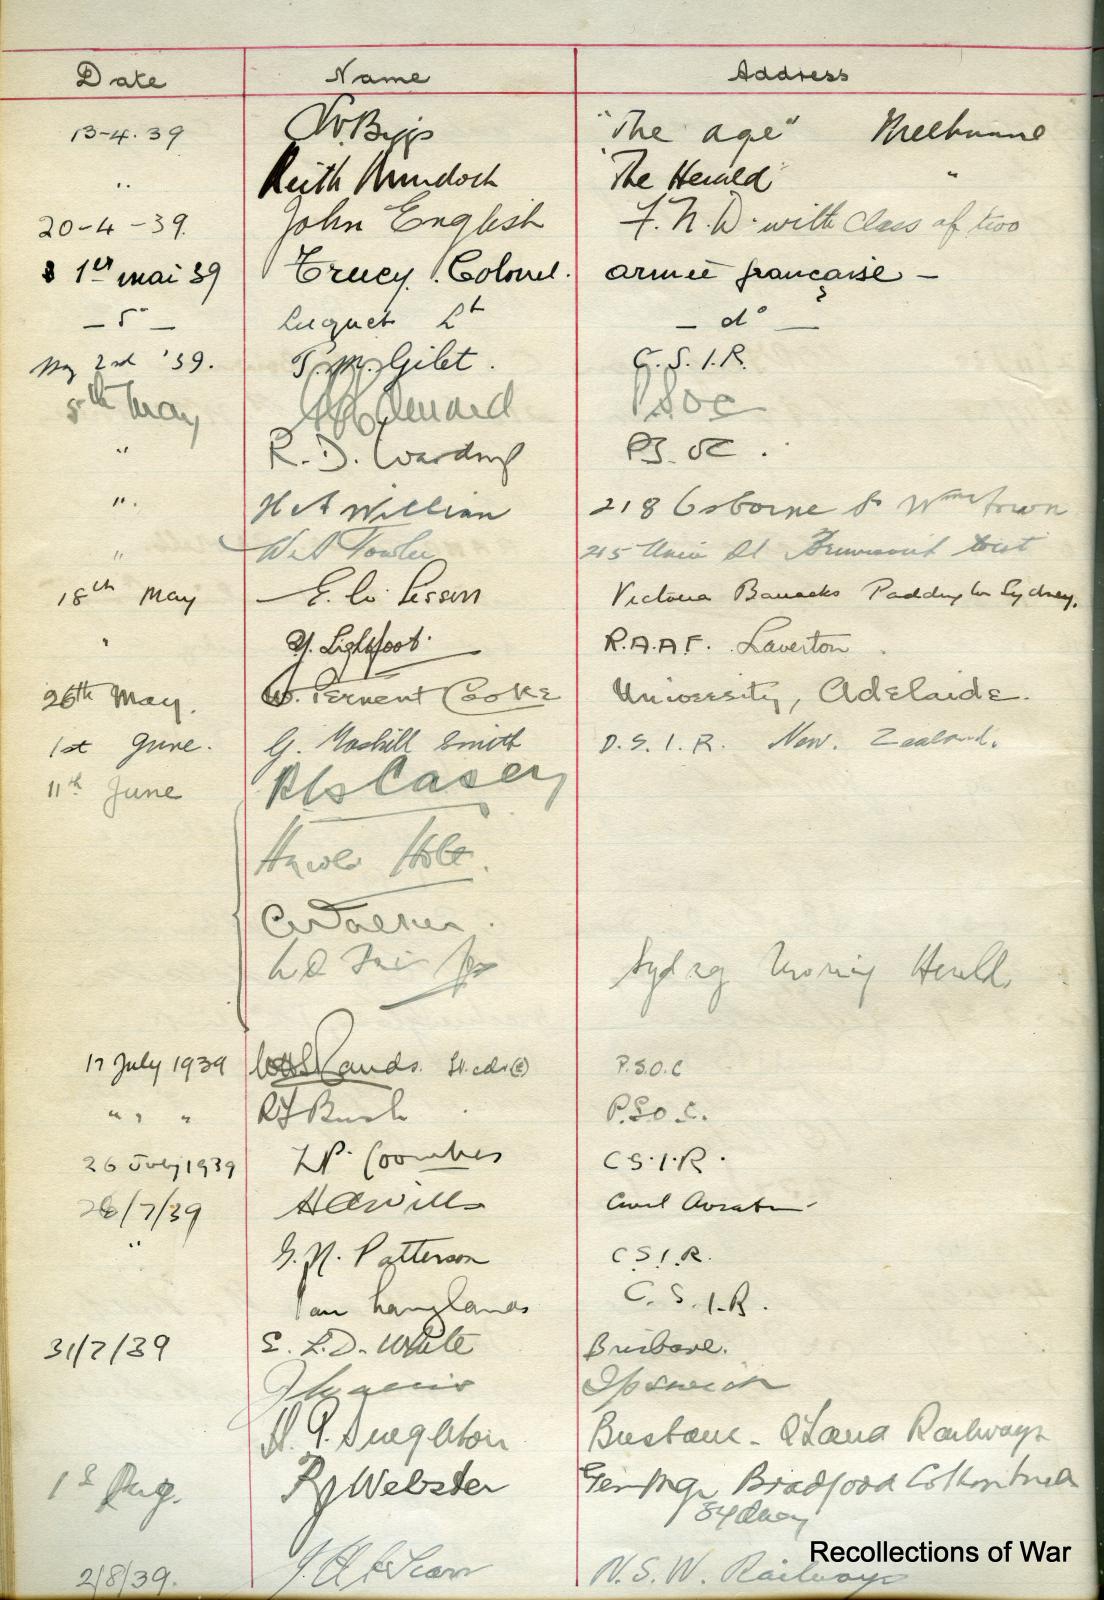 Date Name Address
13-4.39 Biggs "The age" Melbourne
" Keith Murdoch "The Herald" "
20-4-39. John English F.N.D. with class of two
1er mai 39 Trucy. Colonel. armée française —
— 5° — Luquet Lt — d° —
May 2nd '39. Gilet. C.S.I.R.
5th May PSOC
" R. D. Wardrop P.S.OC.
". H A William 218 Osborne St Wmstown
" Fowler St Brunswick West
18th May E. W. Victoria Barracks Paddington Sydney.
" Lightfoot. R.A.A.F. Laverton.
26th May. W. Ternent Cooke University, Adelaide.
1st June. G. Gaskill Smith D.S.I.R. New. Zealand.
11th June Casey
Harold Holt.
Walker.
Sydney Morning Herald.
17 July 1939 Rands. P.S.O.C
" , " Bush P.S.O.C.
26 July 1939 L.P. Coombes C.S.I.R.
26/7/39 Wills Civil Aviation
" G. N. Patterson C.S.I.R.
Ian Langlands C.S.I.R.
31/7/39 E. L.D. White Brisbane.
Ipswich
Singleton Brisbane - Q'land Railways
1st Aug. Webster Gen Mgr Bradford Cotton Mills
Sydney
2/8/39. N.S.W. Railways
Recollections of War